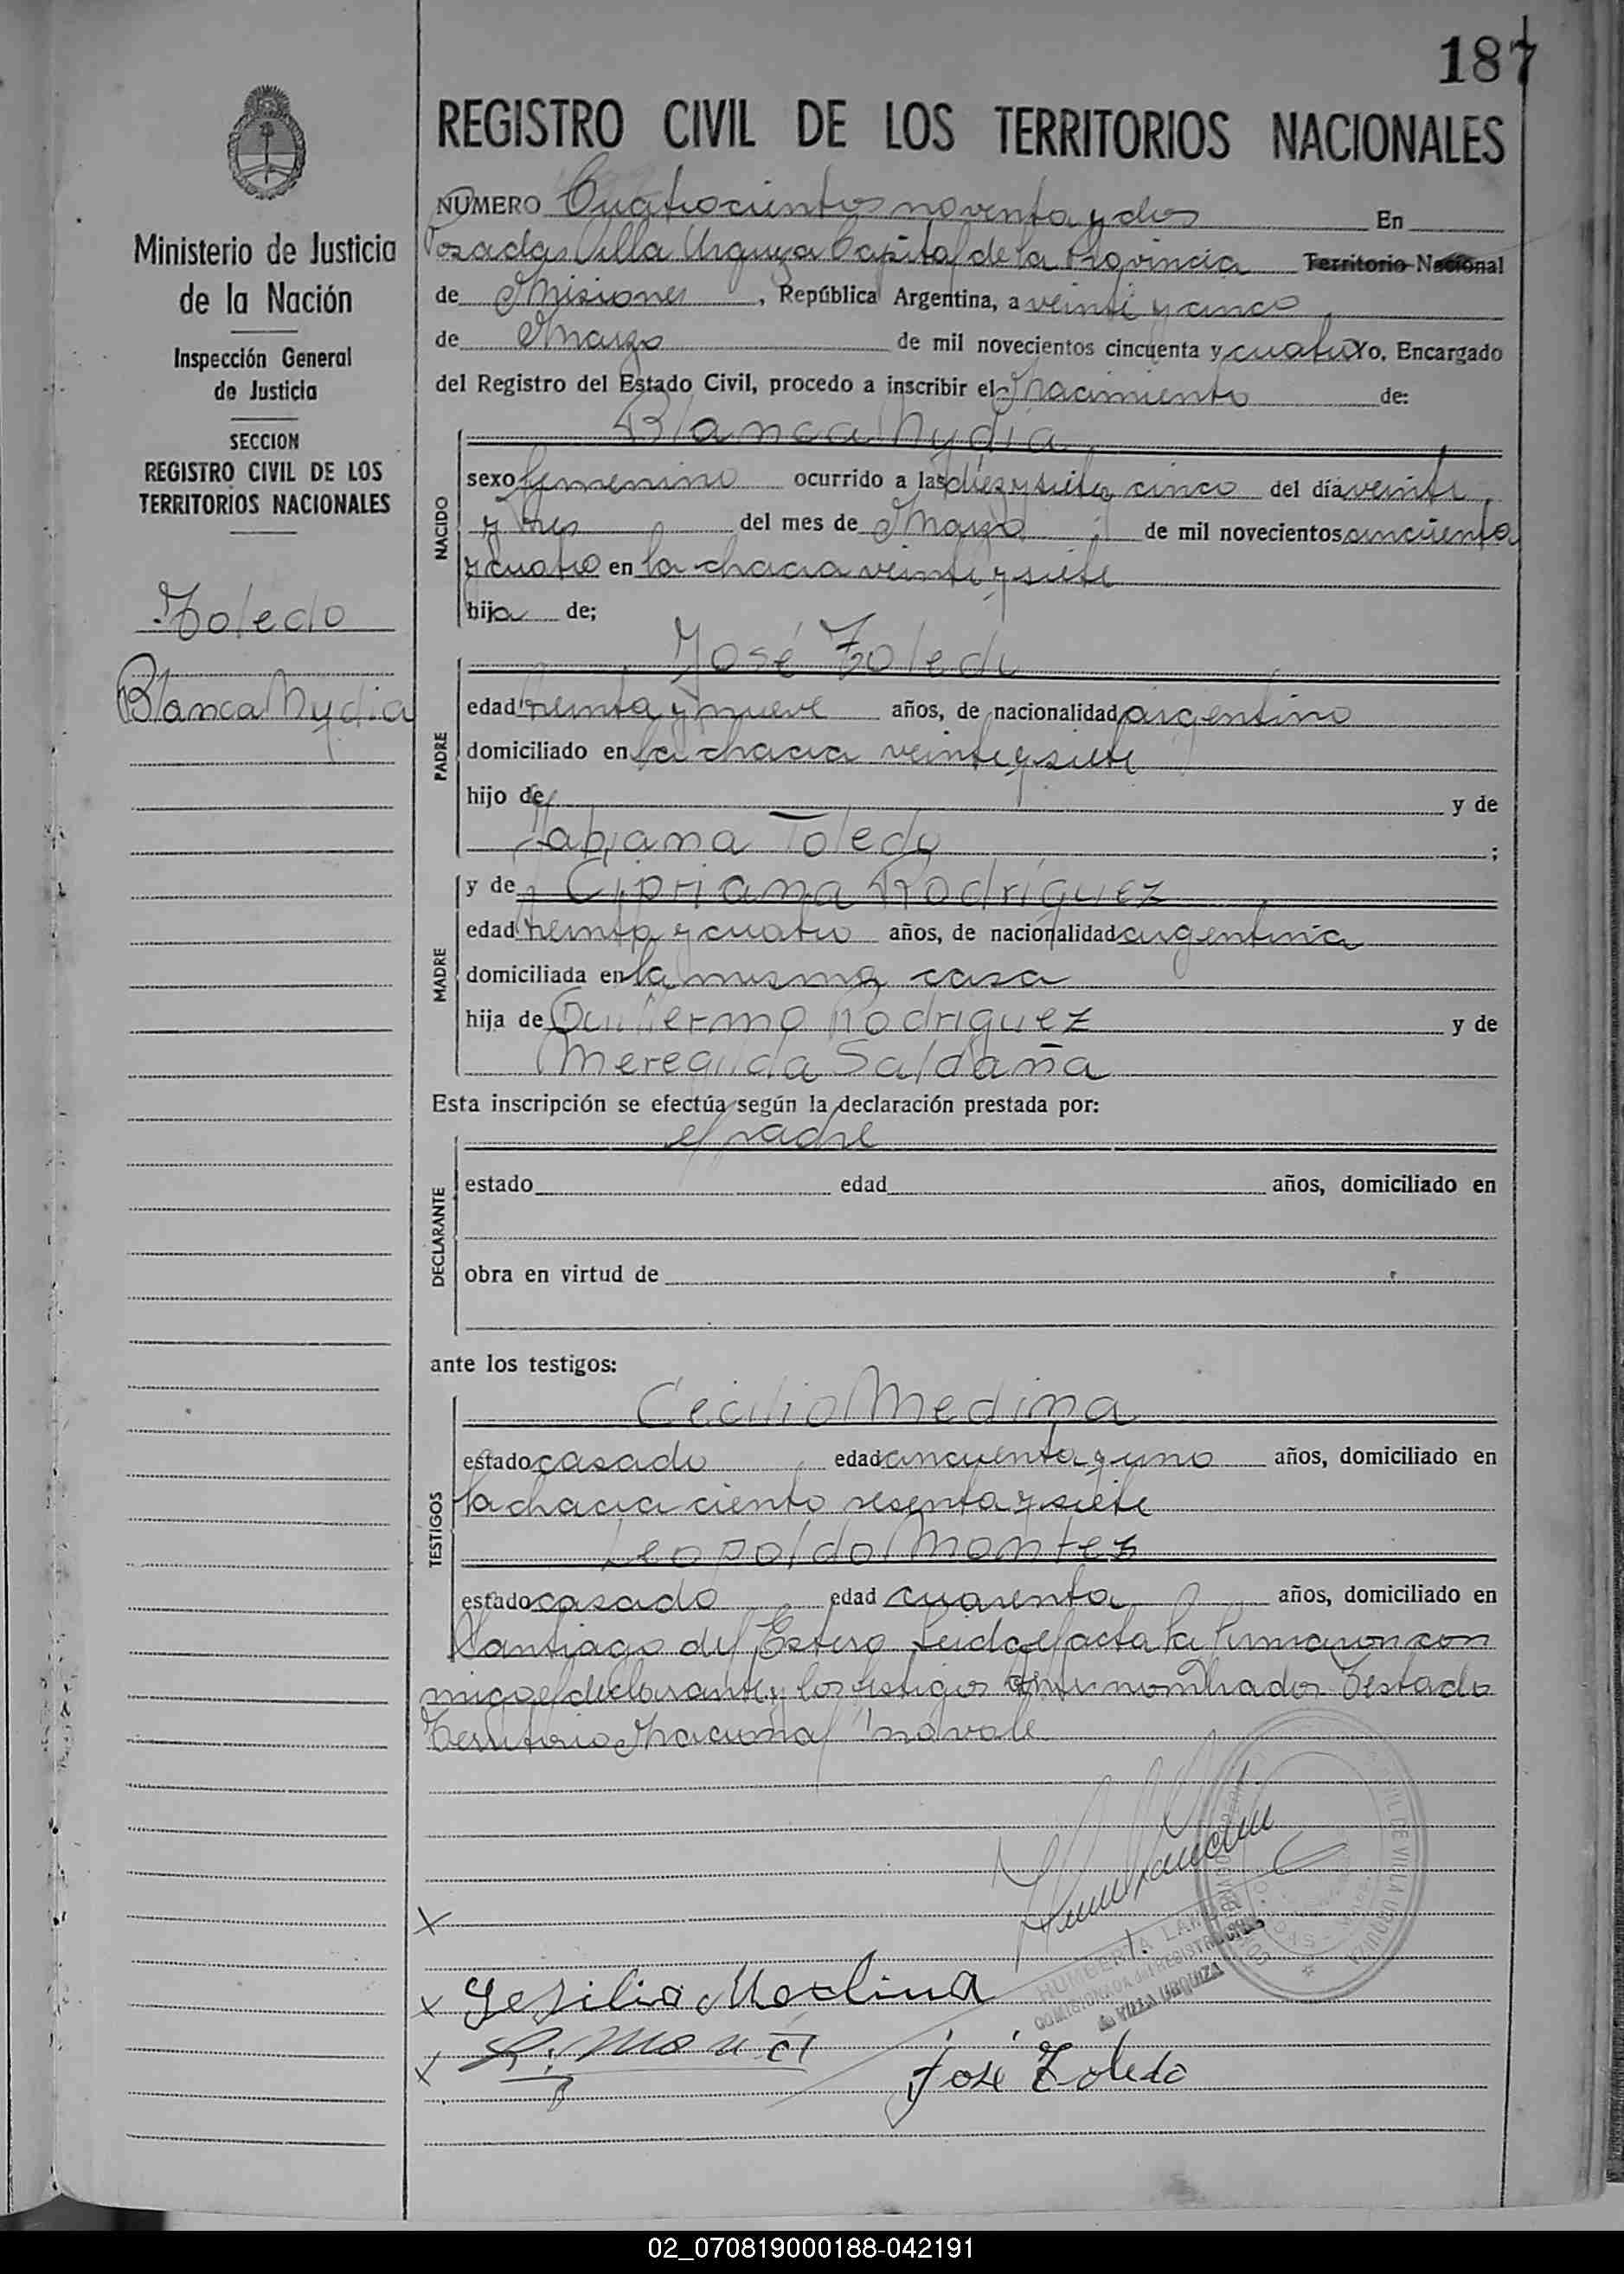 187
REGISTRO CIVIL DE LOS TERRITORIOS NACIONALES
Ministerio de Justicia
de la Nación
Inspección General
de Justicia
SECCION
REGISTRO CIVIL DE LOS
TERRITORIOS NACIONALES
Toledo
Blanca Nydia
NUMERO Cuatrocientos noventa y dos En
Posadas Villa Urquiza Capital de la Provincia Territorio Nacional
de Misiones, República Argentina, a veinti y cinco
de Marzo de mil novecientos cincuenta y cuatro Yo, Encargado
del Registro del Estado Civil, procedo a inscribir el Nacimiento de:
Blanca Nydia
NACIDO
sexo femenino ocurrido a las diez y siete cinco del día veinte
y tres del mes de Marzo de mil novecientos cincuenta
y cuatro en la chacra veinte y siete
hija de;
José Toledo
PADRE
edad treinta y nueve años, de nacionalidad argentino
domiciliado en la chacra veinte y siete
hijo de y de
Fabiana Toledo ;
y de Cipriana Rodríguez
MADRE
edad treinta y cuatro años, de nacionalidad argentina
domiciliada en la misma casa
hija de Guillermo Rodriguez y de
Meregilda Saldaña
Esta inscripción se efectúa según la declaración prestada por:
el padre
DECLARANTE
estado edad años, domiciliado en
obra en virtud de
ante los testigos:
Cecilio Medina
TESTIGOS
estado casado edad cincuenta y uno años, domiciliado en
la chacra ciento sesenta y siete
Leopoldo Montes
estado casado edad cuarenta años, domiciliado en
Santiago del Estero Leida el acta la firmaron con
migo el declarante y los testigos nombrados Testado
Territorio Nacional no vale
HUMBERTA
COMISIONADA del REGISTRO CIVIL
de VILLA URQUIZA
CIVIL DE VILLA URQUIZA
Sesilio Medina
José Toledo
02_070819000188-042191